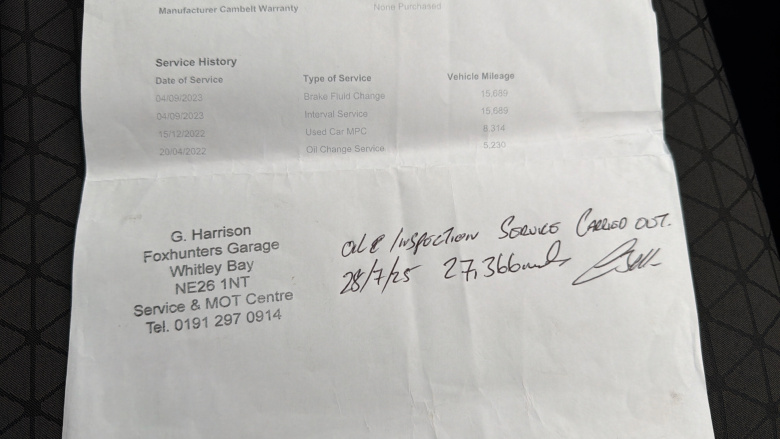 Manufacturer Cambelt Warranty None Purchased
Service History
Date of Service Type of Service Vehicle Mileage
04/09/2023 Brake Fluid Change 15,689
04/09/2023 Interval Service 15,689
15/12/2022 Used Car MPC 8,314
20/04/2022 Oil Change Service 5,230
G. Harrison
Foxhunters Garage
Whitley Bay
NE26 1NT
Service & MOT Centre
Tel. 0191 297 0914
OIL & INSPECTION SERVICE CARRIED OUT.
28/7/25 27,366 miles